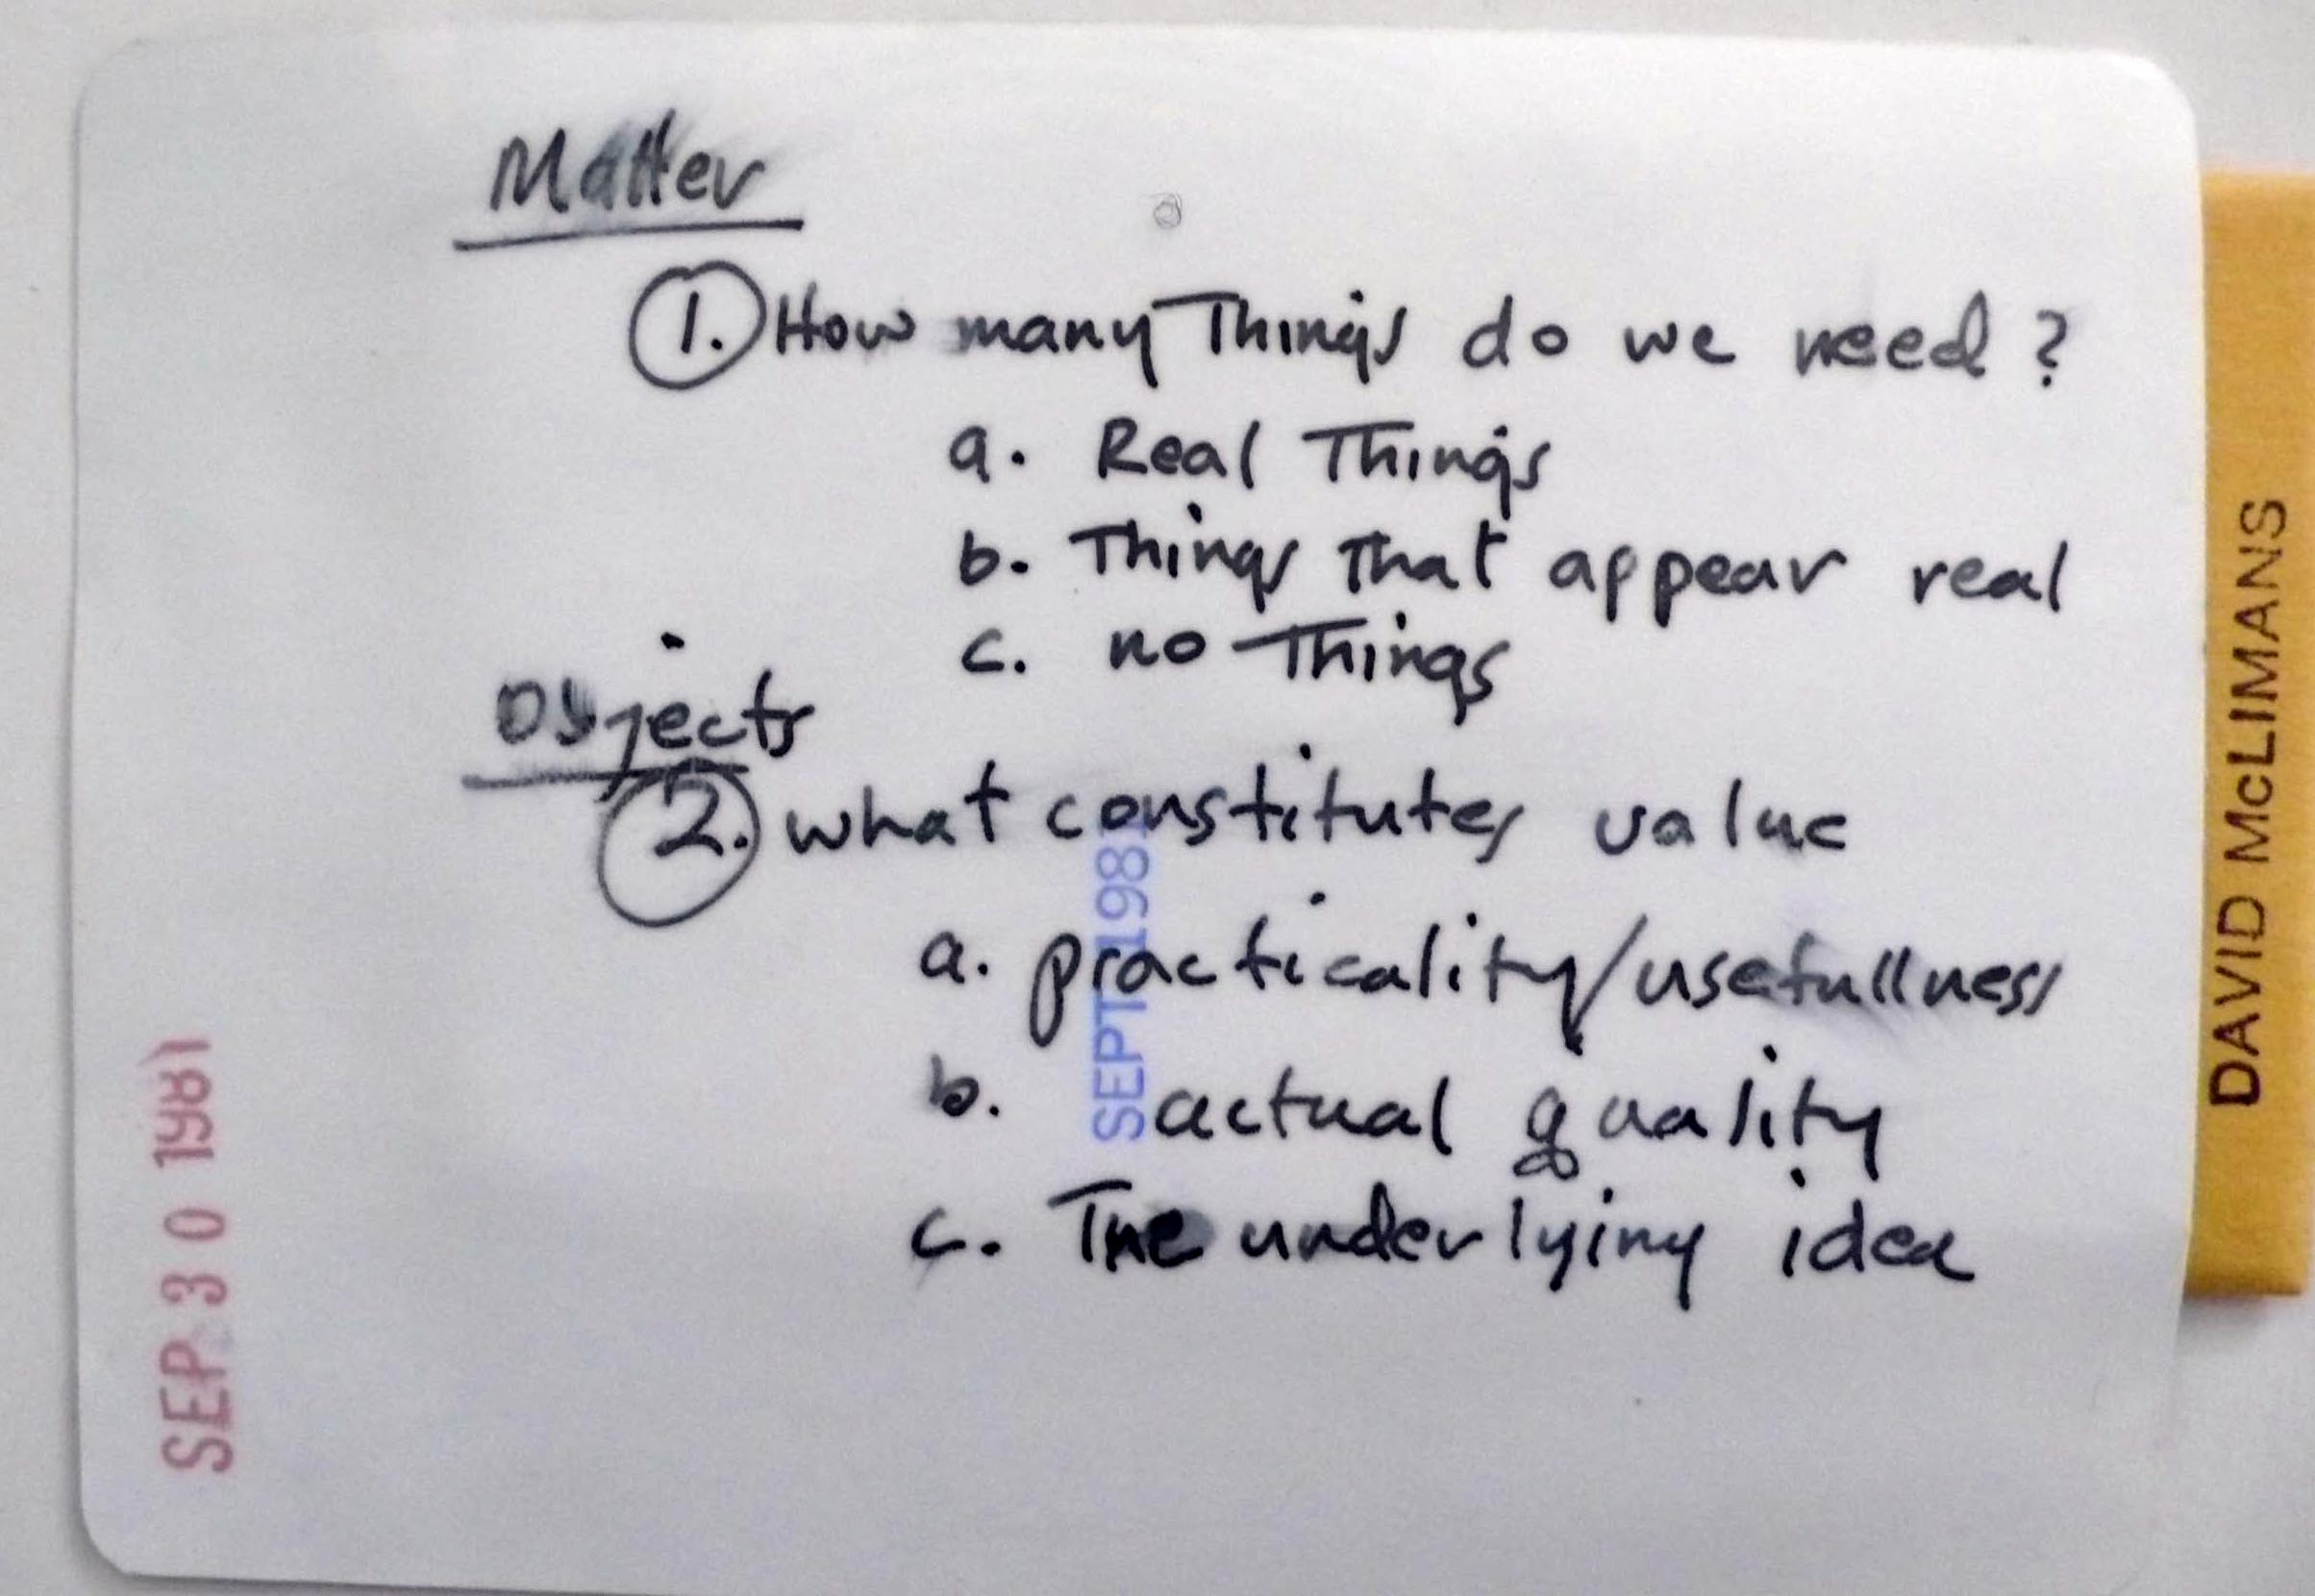 Matter
1. How many Things do we need?
a. Real Things
b. Things that appear real
c. no Things
Objects
2. what constitutes value
a. practicality/usefullness
b. actual quality
c. The underlying idea
SEP 30 1981
SEPT 1981
DAVID McLIMANS